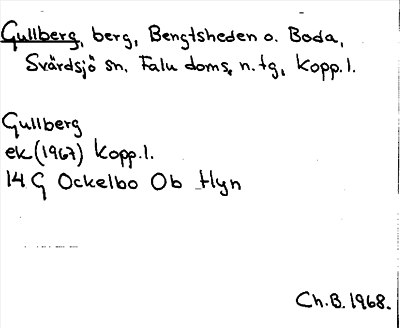 Gullberg, berg, Bengtsheden o. Boda,
Svärdsjö sn. Falu doms. n. tg, Kopp. l.
Gullberg
ek (1967) Kopp. l.
14 G Ockelbo Ob Hyn
Ch. B. 1968.